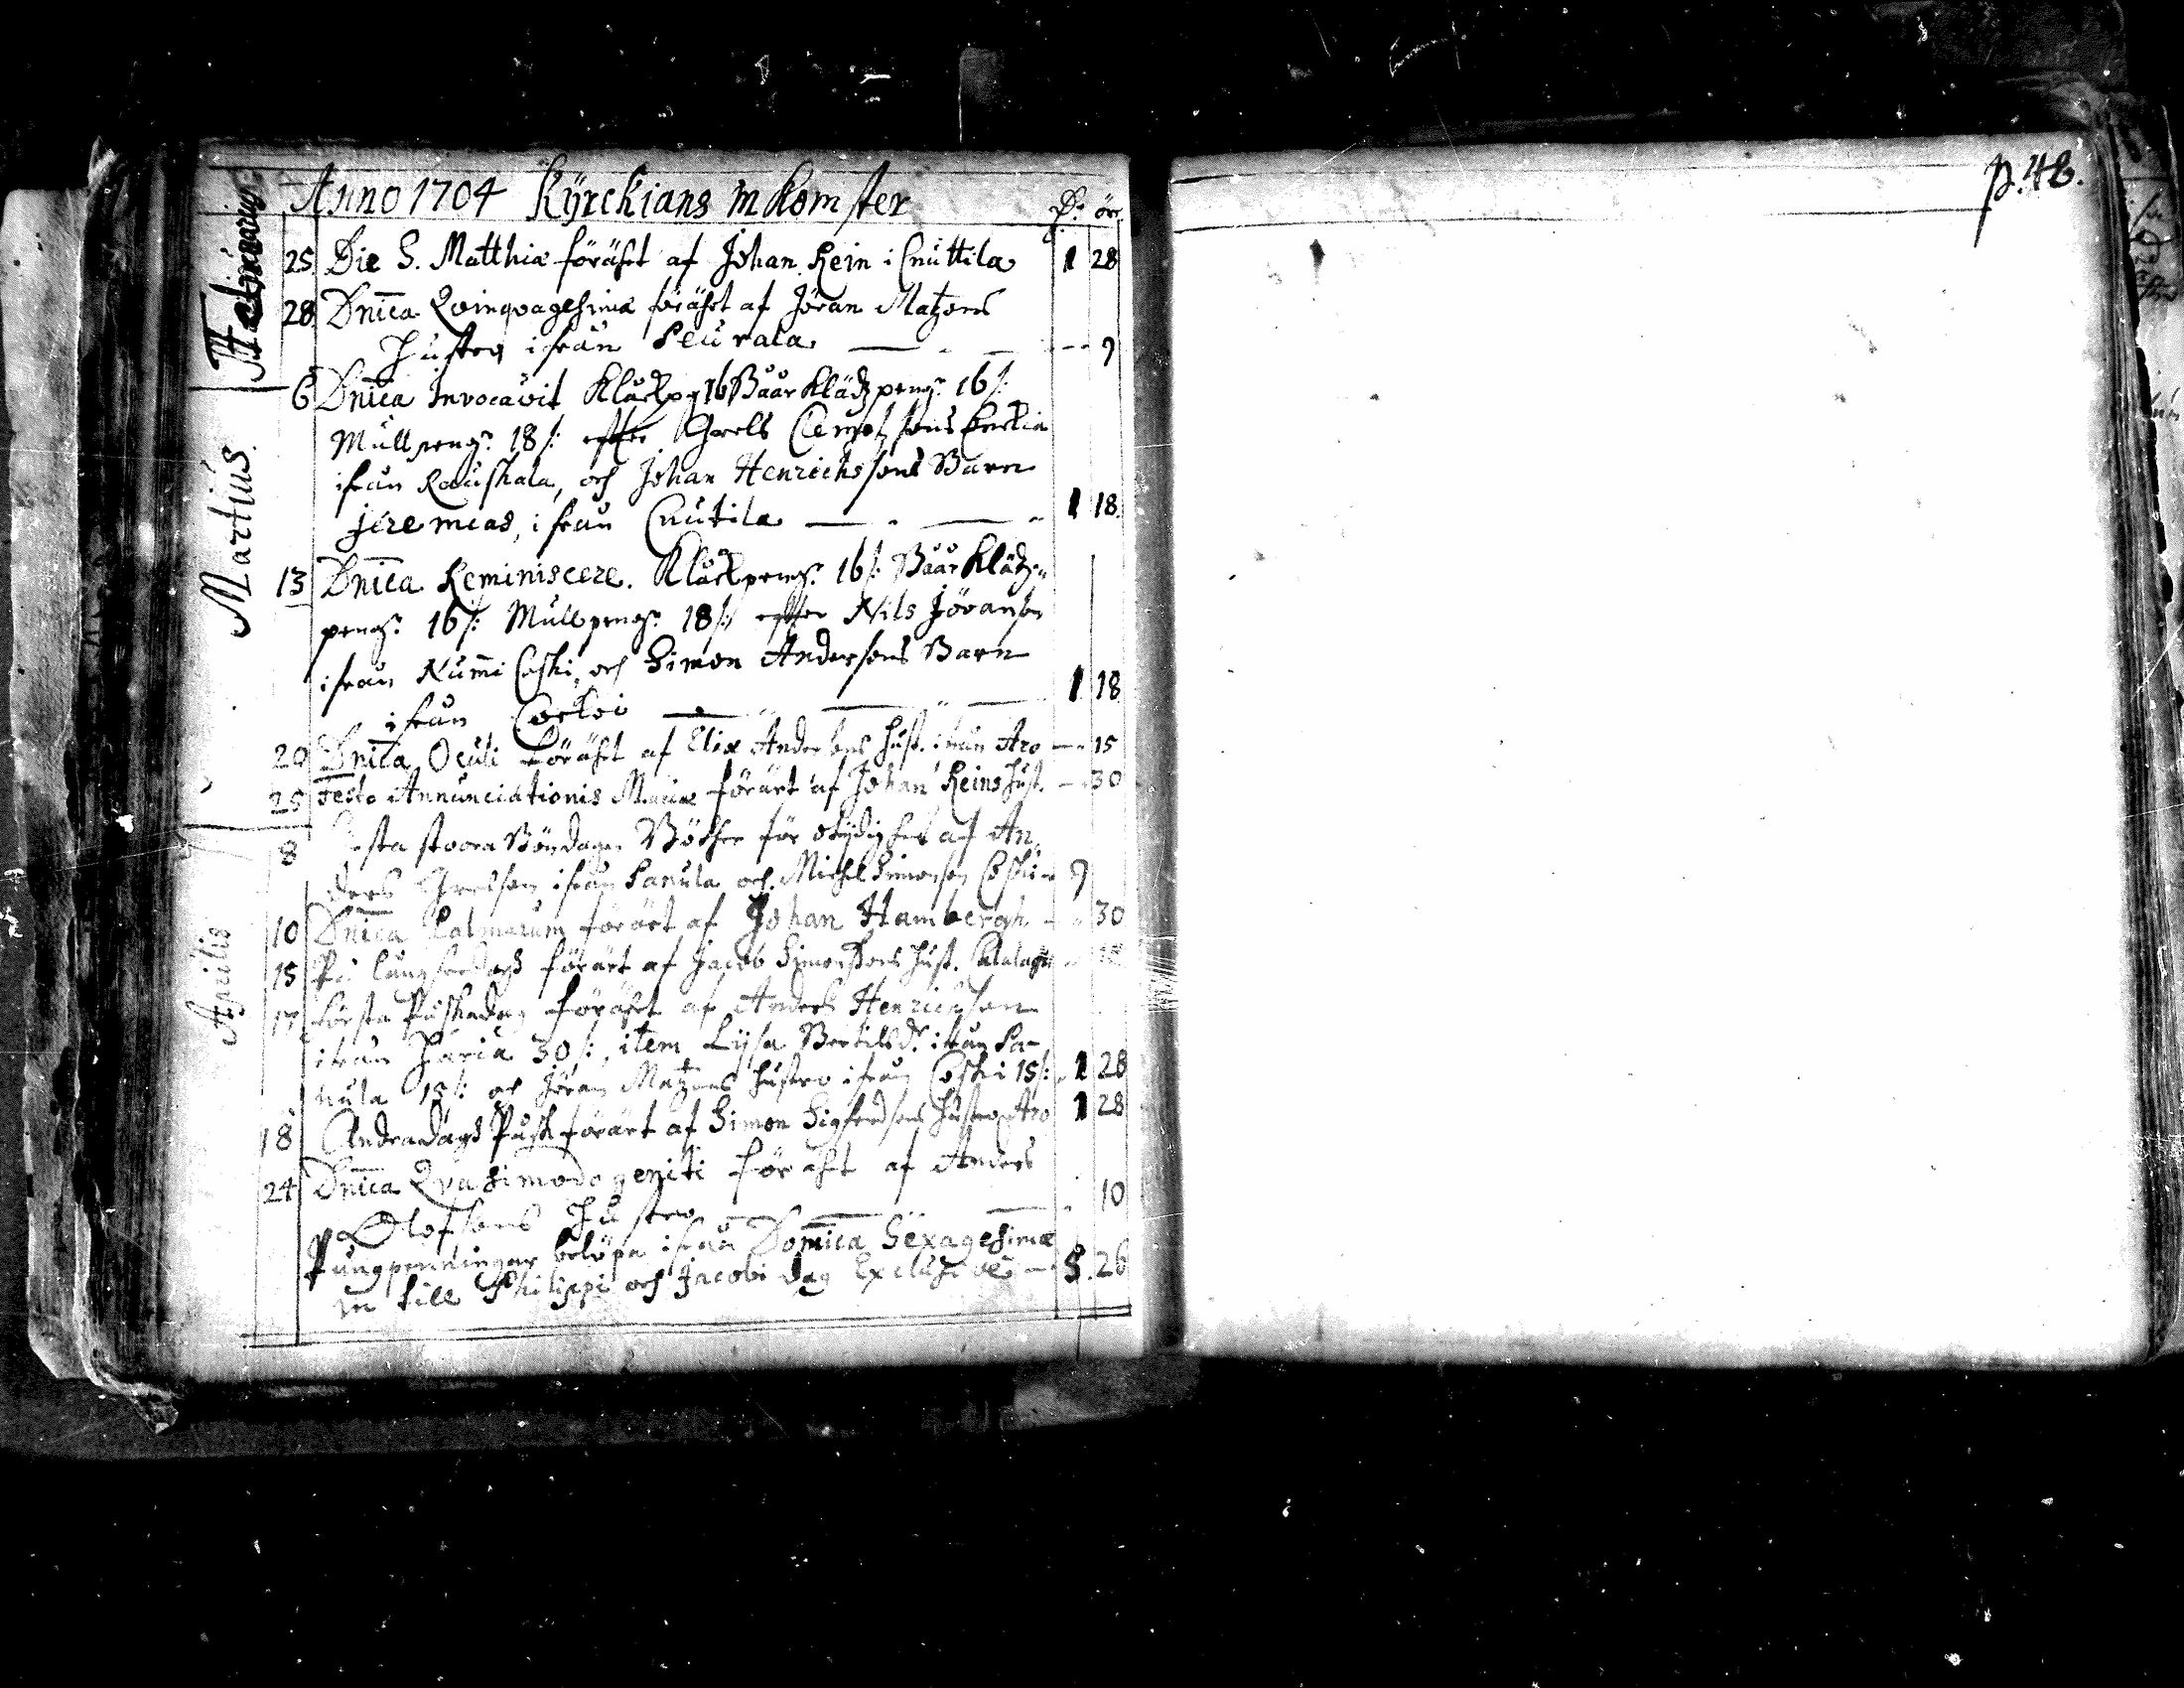 Anno 1704 Kÿrckians Inkomster D:r ör:
Februarius
25 Die S. Matthiæ förährt af Johan Rein i Cnuttila 1 28
28 Dnica Qvinqvagesimæ förährt af Jöran Matzons
hustru ifrån Peurala 9
Martius
6 Dnica Invocavit Klåckpg 16 Båår klädz peng:r 16/:
Mullpeng:r 18/: effter Grels Clemetzsons
ifrån Rauskala, och Johan Henrichssons Barn
Jeremias, ifrån Cnutila 1 18
13 Dnica Reminiscere. Klåckpeng:r 16/: Båår klädz
peng:r 16/: Mullpeng:r 18/: effter Nils Jöranson
ifrån Nummi Coski, och Simon Andersons Barn
ifrån 1 18
20 Dnica Oculi förährt af Eliæ Andersons hust. ifrån Aro 15
25 Festo Annunciationis Mariæ förärt af Johan Reins hust. 30
Aprilis
8 stoora Böndagen Böther för af An
ders Grelson ifrån Sanula och Michel Simonson Coski 9
10 Dnica Palmarum förärt af Johan Hambergh 30
15 På långfredags förärt af Jacob Simonssons hust.
17 Första Påskadag förährt af Anders Henrichson
ifrån Haria 30/:, item Lysa Bertilsd:r ifrån Sa-
nula 15/: och Jöran Matzons hustru ifrån Coski 15/: 1 28
18 Andradags Påsk förärt af Simon Sigfredsons hustru Aro 1 28
24 Dnica Qvasimodogeniti förährt af Anders
Olofsons Hustru 10
Pungpenningar belöpa ifrån Domica Sexagesimæ
in till Philippi och Jacobi dag Exclusive 8. 26
p. 48.